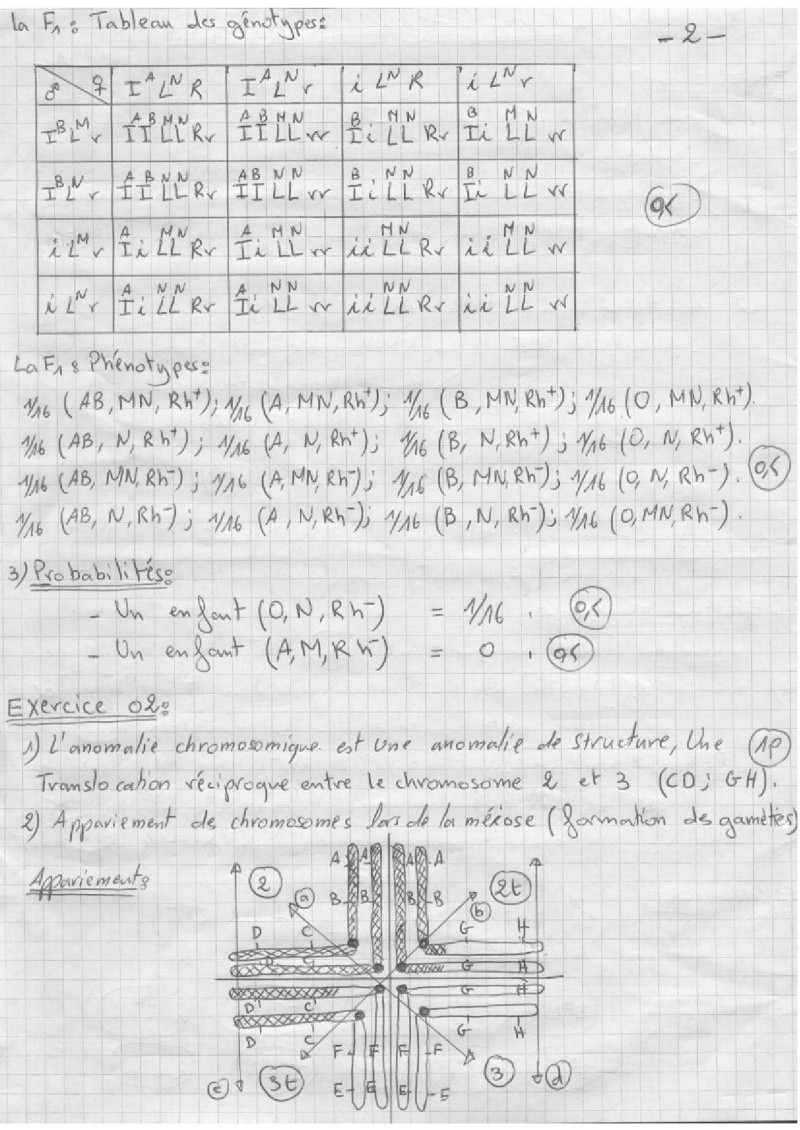 La F1 : Tableau des génotypes:
- 2 -
♂ ♀ | I^A L^N R | I^A L^N r | i L^N R | i L^N r
I^B L^M r | I^A I^B L^M L^N Rr | I^A I^B L^M L^N rr | I^B i L^M L^N Rr | I^B i L^M L^N rr
I^B L^N r | I^A I^B L^N L^N Rr | I^A I^B L^N L^N rr | I^B i L^N L^N Rr | I^B i L^N L^N rr
0,5
i L^M r | I^A i L^M L^N Rr | I^A i L^M L^N rr | ii L^M L^N Rr | ii L^M L^N rr
i L^N r | I^A i L^N L^N Rr | I^A i L^N L^N rr | ii L^N L^N Rr | ii L^N L^N rr
La F1 : Phénotypes:
1/16 (AB, MN, Rh+); 1/16 (A, MN, Rh+); 1/16 (B, MN, Rh+); 1/16 (O, MN, Rh+).
1/16 (AB, N, Rh+); 1/16 (A, N, Rh+); 1/16 (B, N, Rh+); 1/16 (O, N, Rh+).
1/16 (AB, MN, Rh-); 1/16 (A, MN, Rh-); 1/16 (B, MN, Rh-); 1/16 (O, N, Rh-). 0,5
1/16 (AB, N, Rh-); 1/16 (A, N, Rh-); 1/16 (B, N, Rh-); 1/16 (O, MN, Rh-).
3) Probabilités:
- Un enfant (O, N, Rh-) = 1/16 . 0,5
- Un enfant (A, M, Rh-) = 0 . 0,5
Exercice 02:
1) L'anomalie chromosomique est une anomalie de structure, Une 1P
Translocation réciproque entre le chromosome 2 et 3 (CD; GH).
2) Appariement des chromosomes lors de la méiose (formation des gamètes)
Appariement:
A A A A
2 a B B B B b 2t
D C G H
D C G H
D' C' G H
D C G H
F F F F
c 3t E E E E 3 d